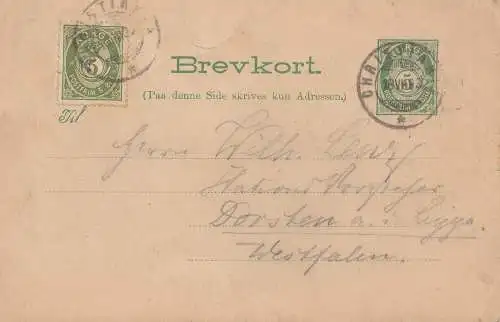 NORGE
5
POSTFRIM.5.Ø
Brevkort.
(Paa denne Side skrives kun Adressen.)
Til
CHRISTIANIA
Herrn Wilh.
Stations Vorsteher
Dorsten a. d. Lippe
Westfalen.